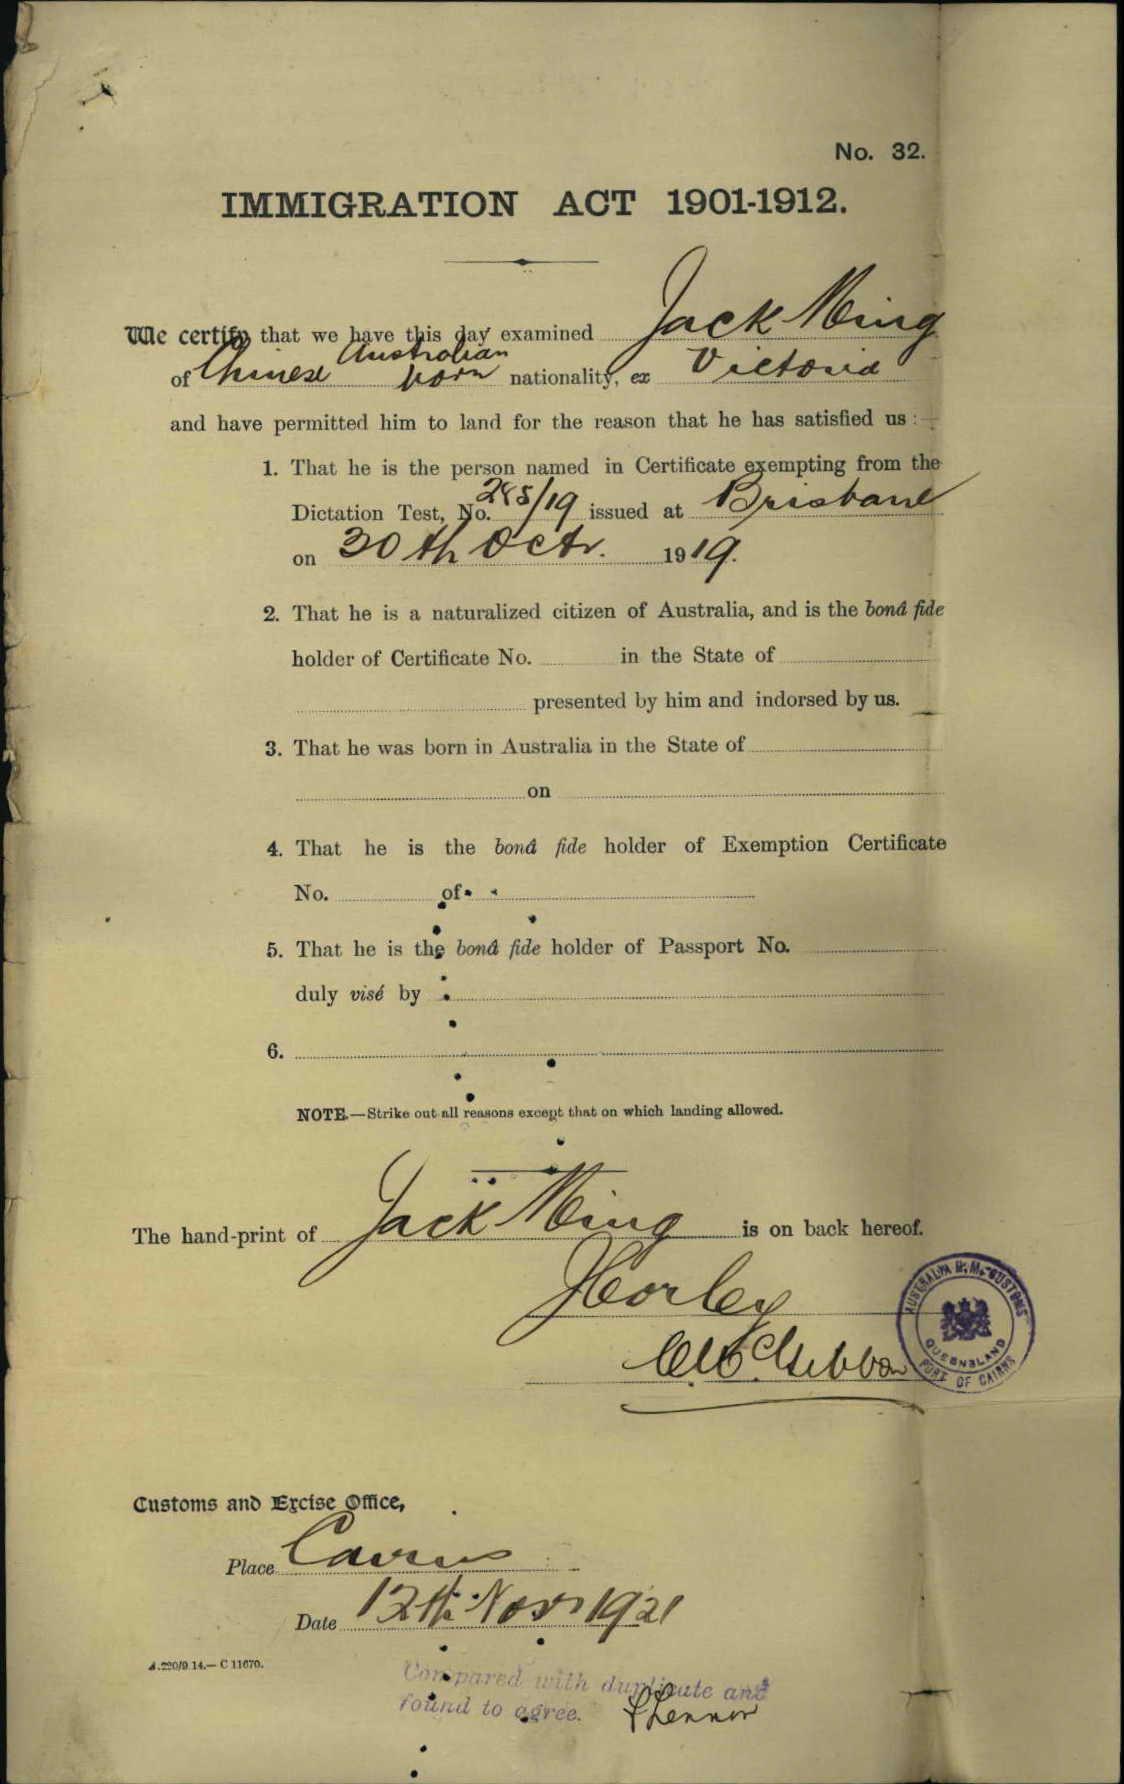 No. 32.
IMMIGRATION ACT 1901-1912.
We certify that we have this day examined Jack Ming
Australian
of Chinese born nationality, ex Victoria
and have permitted him to land for the reason that he has satisfied us :—
1. That he is the person named in Certificate exempting from the
Dictation Test, No. 285/19 issued at Brisbane
on 30th Octr. 1919.
2. That he is a naturalized citizen of Australia, and is the bonâ fide
holder of Certificate No. in the State of
presented by him and indorsed by us.
3. That he was born in Australia in the State of
on
4. That he is the bonâ fide holder of Exemption Certificate
No. of
5. That he is the bonâ fide holder of Passport No.
duly visé by
6.
NOTE.—Strike out all reasons except that on which landing allowed.
The hand-print of Jack Ming is on back hereof.
Horley
McGibbon
AUSTRALIA H.M. CUSTOMS
QUEENSLAND
PORT OF CAIRNS
Customs and Excise Office,
Place Cairns
Date 12th Nov 1921
A.220/9.14.—C 11670.
Compared with duplicate and
found to agree.